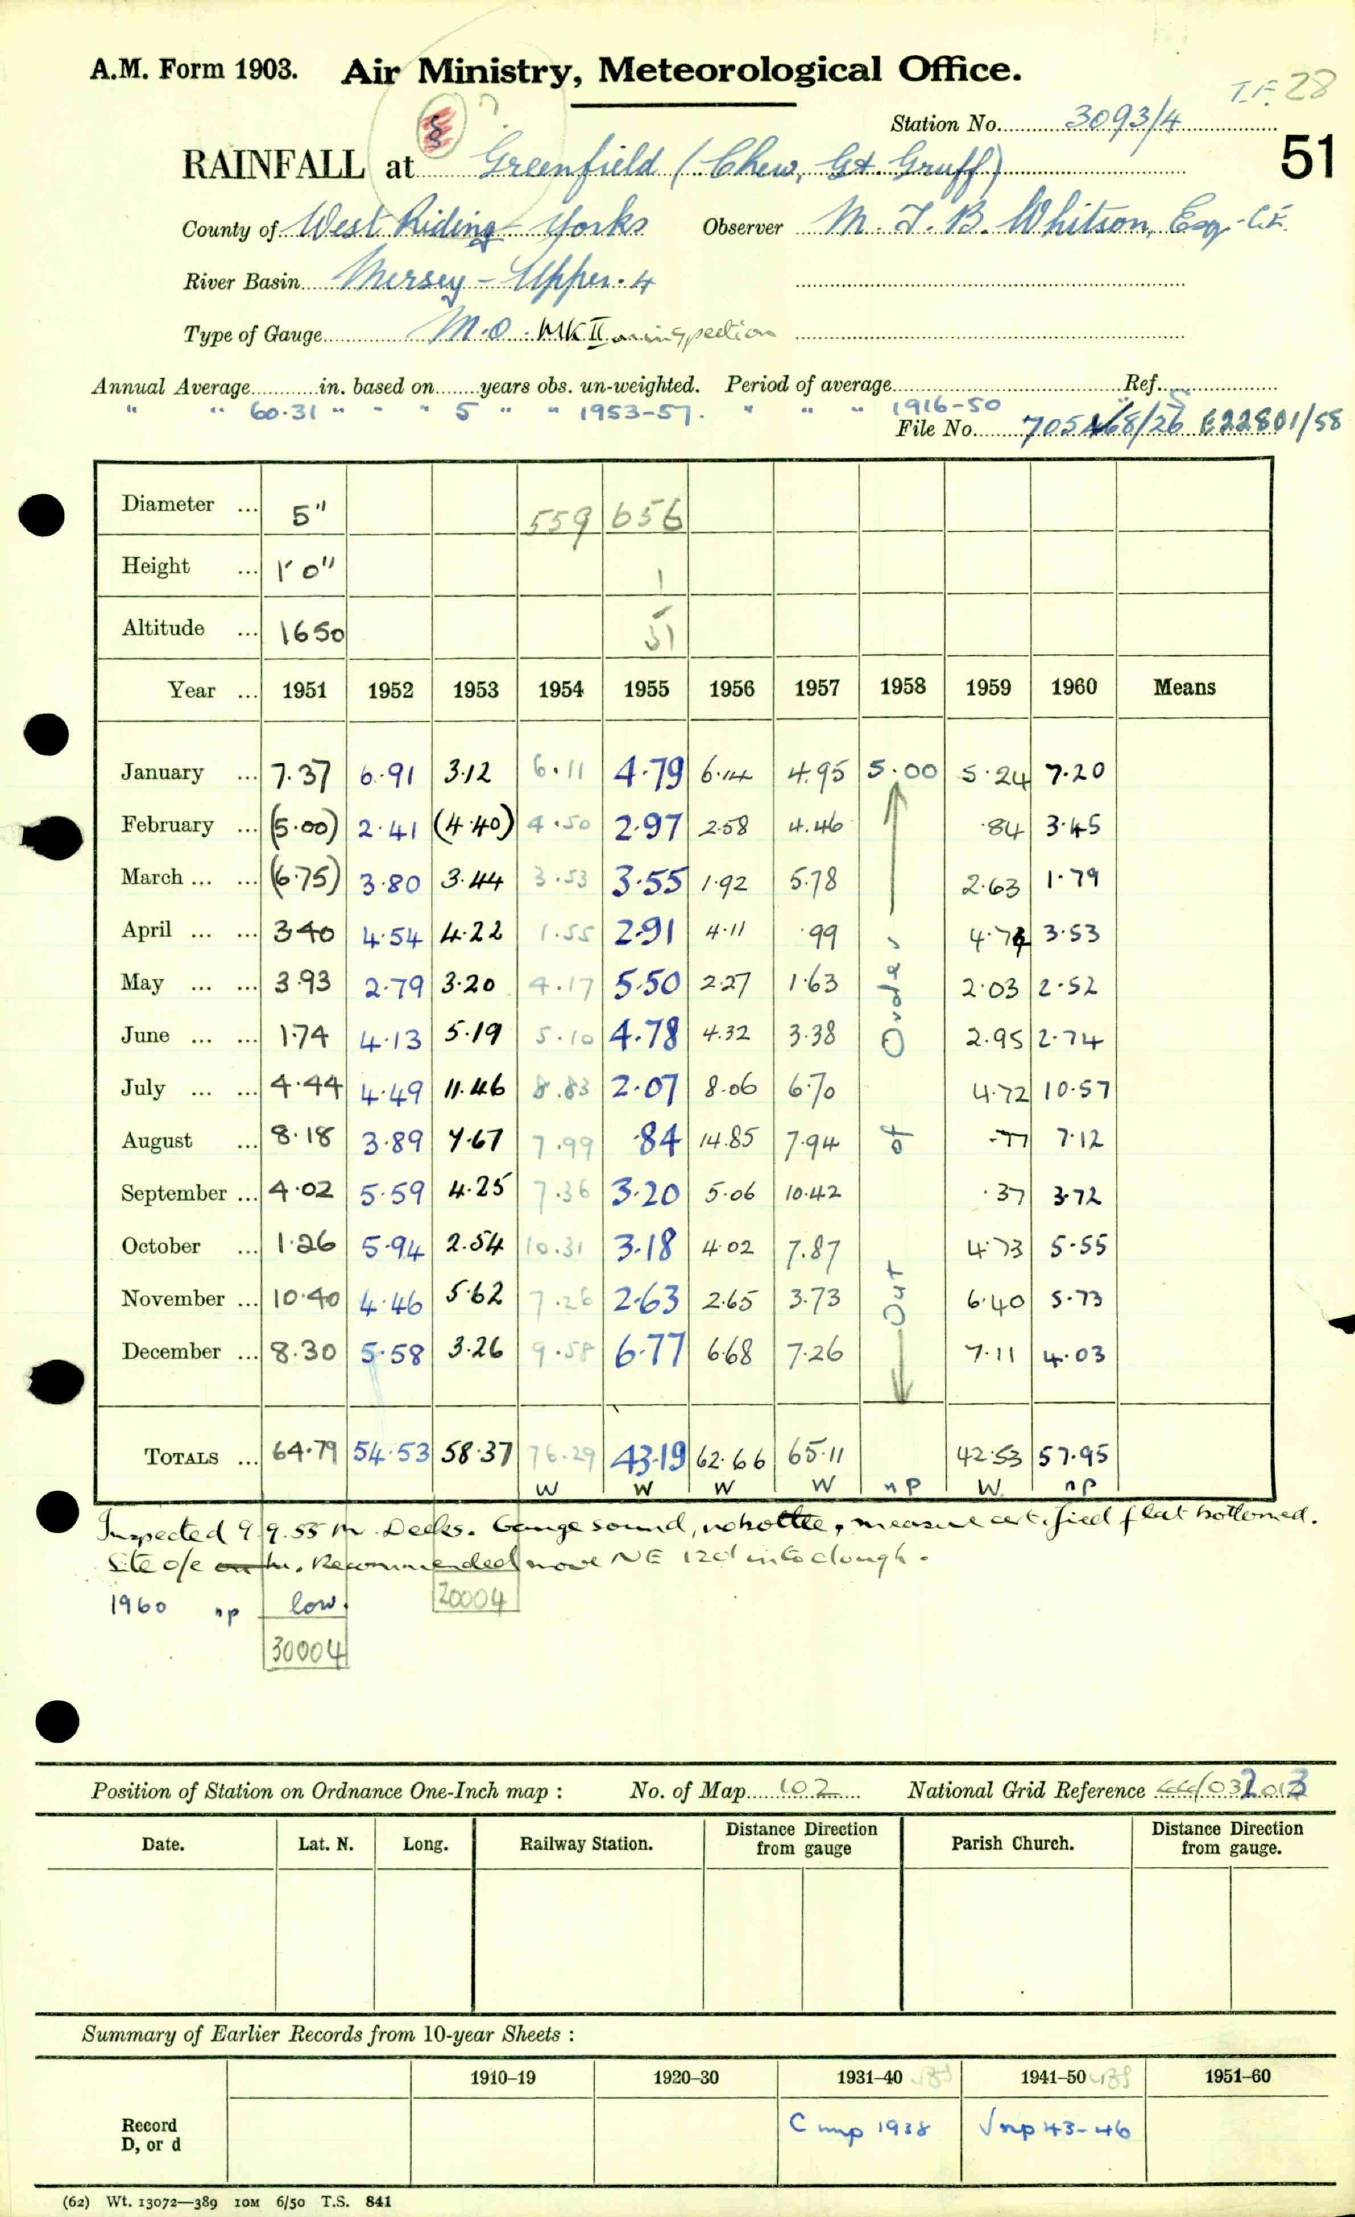 A.M. Form 1903. Air Ministry, Meteorological Office.
28
Station No. 3093/4
51
RAINFALL at Greenfield (Chew, Gt. Gruff)
County of West Riding Yorks Observer M. J. B. Whitson, Esq. C.E.
River Basin Mersey - Upper. 4
Type of Gauge M.O. MK II on inspection
Annual Average in. based on years obs. un-weighted. Period of average Ref.
" " 60.31 " " " 5 " " 1953-57. " " " 1916-50
File No. E22801/58
Diameter ... 5" 559 656
Height ... 1' 0" 1
Altitude ... 1650 51
Year ... 1951 1952 1953 1954 1955 1956 1957 1958 1959 1960 Means
January ... 7.37 6.91 3.12 6.11 4.79 6.14 4.95 5.00 5.24 7.20
February ... (5.00) 2.41 (4.40) 4.50 2.97 2.58 4.46 .84 3.45
March ... ... (6.75) 3.80 3.44 3.53 3.55 1.92 5.78 2.63 1.79
April ... ... 3.40 4.54 4.22 1.55 2.91 4.11 .99 4.74 3.53
May ... ... 3.93 2.79 3.20 4.17 5.50 2.27 1.63 2.03 2.52
June ... ... 1.74 4.13 5.19 5.10 4.78 4.32 3.38 2.95 2.74
July ... ... 4.44 4.49 11.46 8.83 2.07 8.06 6.70 4.72 10.57
August ... 8.18 3.89 7.67 7.99 .84 14.85 7.94 .77 7.12
September ... 4.02 5.59 4.25 7.36 3.20 5.06 10.42 .37 3.72
October ... 1.26 5.94 2.54 10.31 3.18 4.02 7.87 4.73 5.55
November ... 10.40 4.46 5.62 7.26 2.63 2.65 3.73 6.40 5.73
December ... 8.30 5.58 3.26 9.58 6.77 6.68 7.26 7.11 4.03
Out of Order
Totals ... 64.79 54.53 58.37 76.29 43.19 62.66 65.11 42.53 57.95
W W W W np W np
Inspected 9.9.55 Mr. Decks. Gauge sound, no bottle, measure certified flat bottomed.
Site o/e Recommended move NE 12d into clough.
1960 np low. 20004
30004
Position of Station on Ordnance One-Inch map : No. of Map 102 National Grid Reference
Date. Lat. N. Long. Railway Station. Distance from Direction gauge Parish Church. Distance from Direction gauge.
Summary of Earlier Records from 10-year Sheets :
1910–19 1920–30 1931–40 1941–50 1951–60
Record D, or d C mp 1938 √ np 43-46
(62) Wt. 13072—389 10M 6/50 T.S. 841